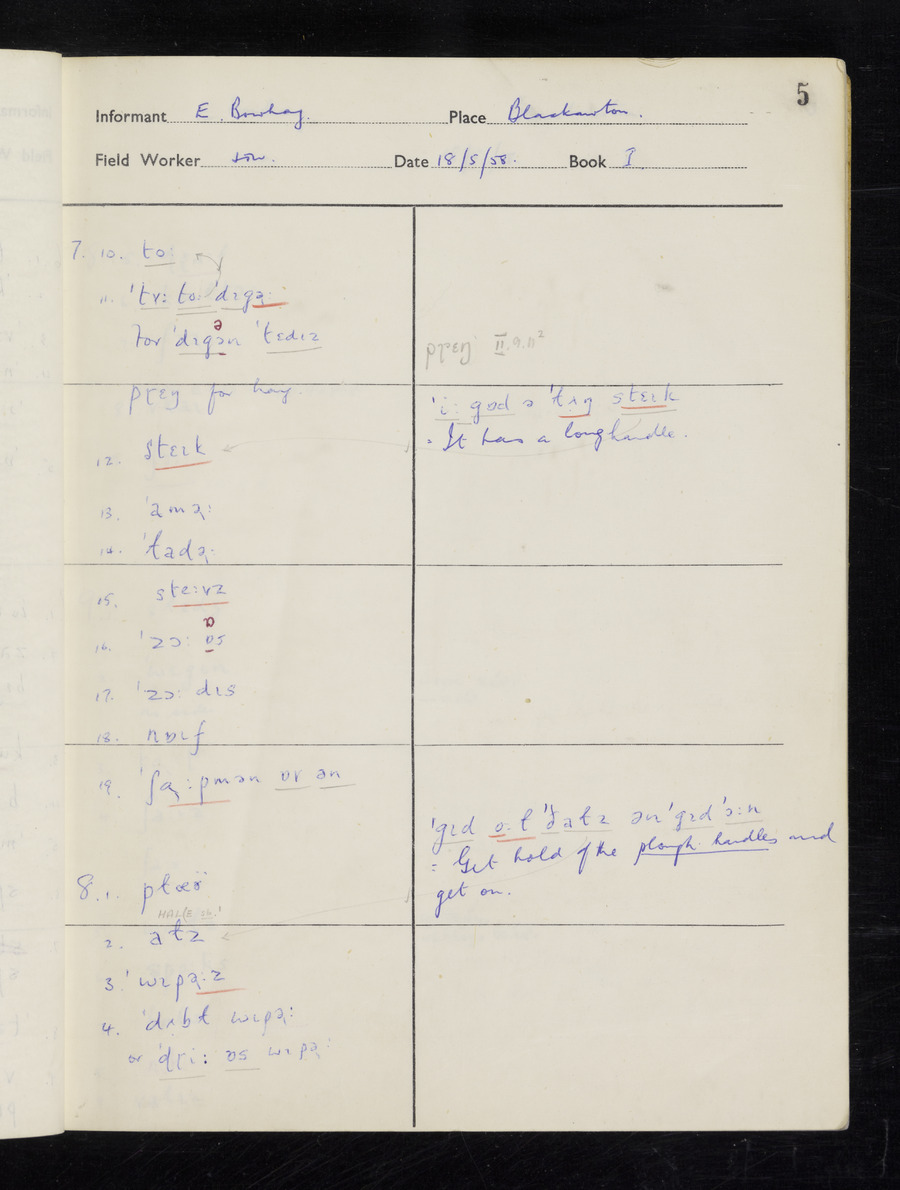 5
Informant E. Bowhay. Place Blackawton.
Field Worker Date 18/5/58. Book I
7. 10. to:
11. 'tɤ: to: 'dɪgə
For 'dɪgən 'tedɪz
ə
prɛŋ II.9.11²
prɛŋ for hay.
12. stɛɪk
'i: gɒd ə 'tʌŋ stɛɪk
= It has a long handle.
13. 'amə:
14. 'ɫadə:
15. ste:vz
ɒ
16. 'zɔ: ɒs
17. 'zɔ: dɪs
18. nɒɪf
19. 'ʃɑ:pmən ɒr ən
'gɪd o:t 'ðatz ən 'gɪd 'ɔ:n
= Get hold of the plough handles and
get on.
8. 1.
2. aɫz
3. 'wɪpə:z
4. 'dʌbɫ wɪpə:
or 'dri: ɒs wɪpə: